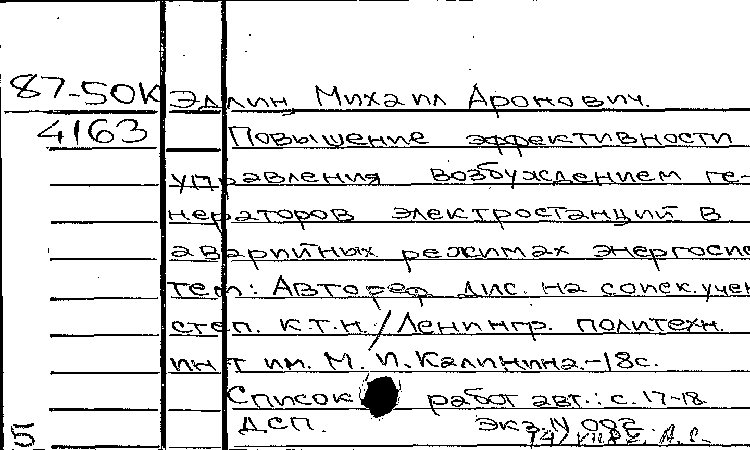 87-50К Эдлин, Михаил Аронович.
4163 Повышение эффективности
управления возбуждением ге-
нераторов электростанций в
аварийных режимах энергосис
тем: Автореф. дис. на соиск. учен
степ. к.т.н. / Ленингр. политехн.
ин-т им. М. И. Калинина.-18с.
Список работ авт.: с. 17-18
ДСП. Экз. N 002
5